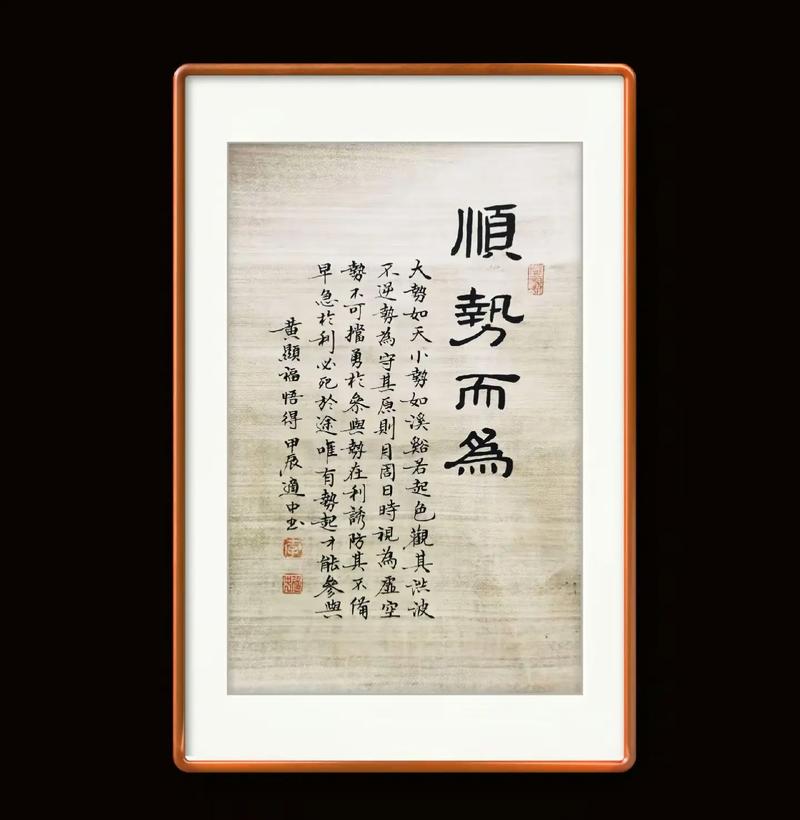 順勢而為
大勢如天小勢如溪谿若起色觀其洪波
不逆勢為守其原則月周日時視為虛空
勢不可擋勇於叅與勢在利誘防其不備
早急於利必死於途唯有勢起才能參與
黃顯福悟得甲辰適中书